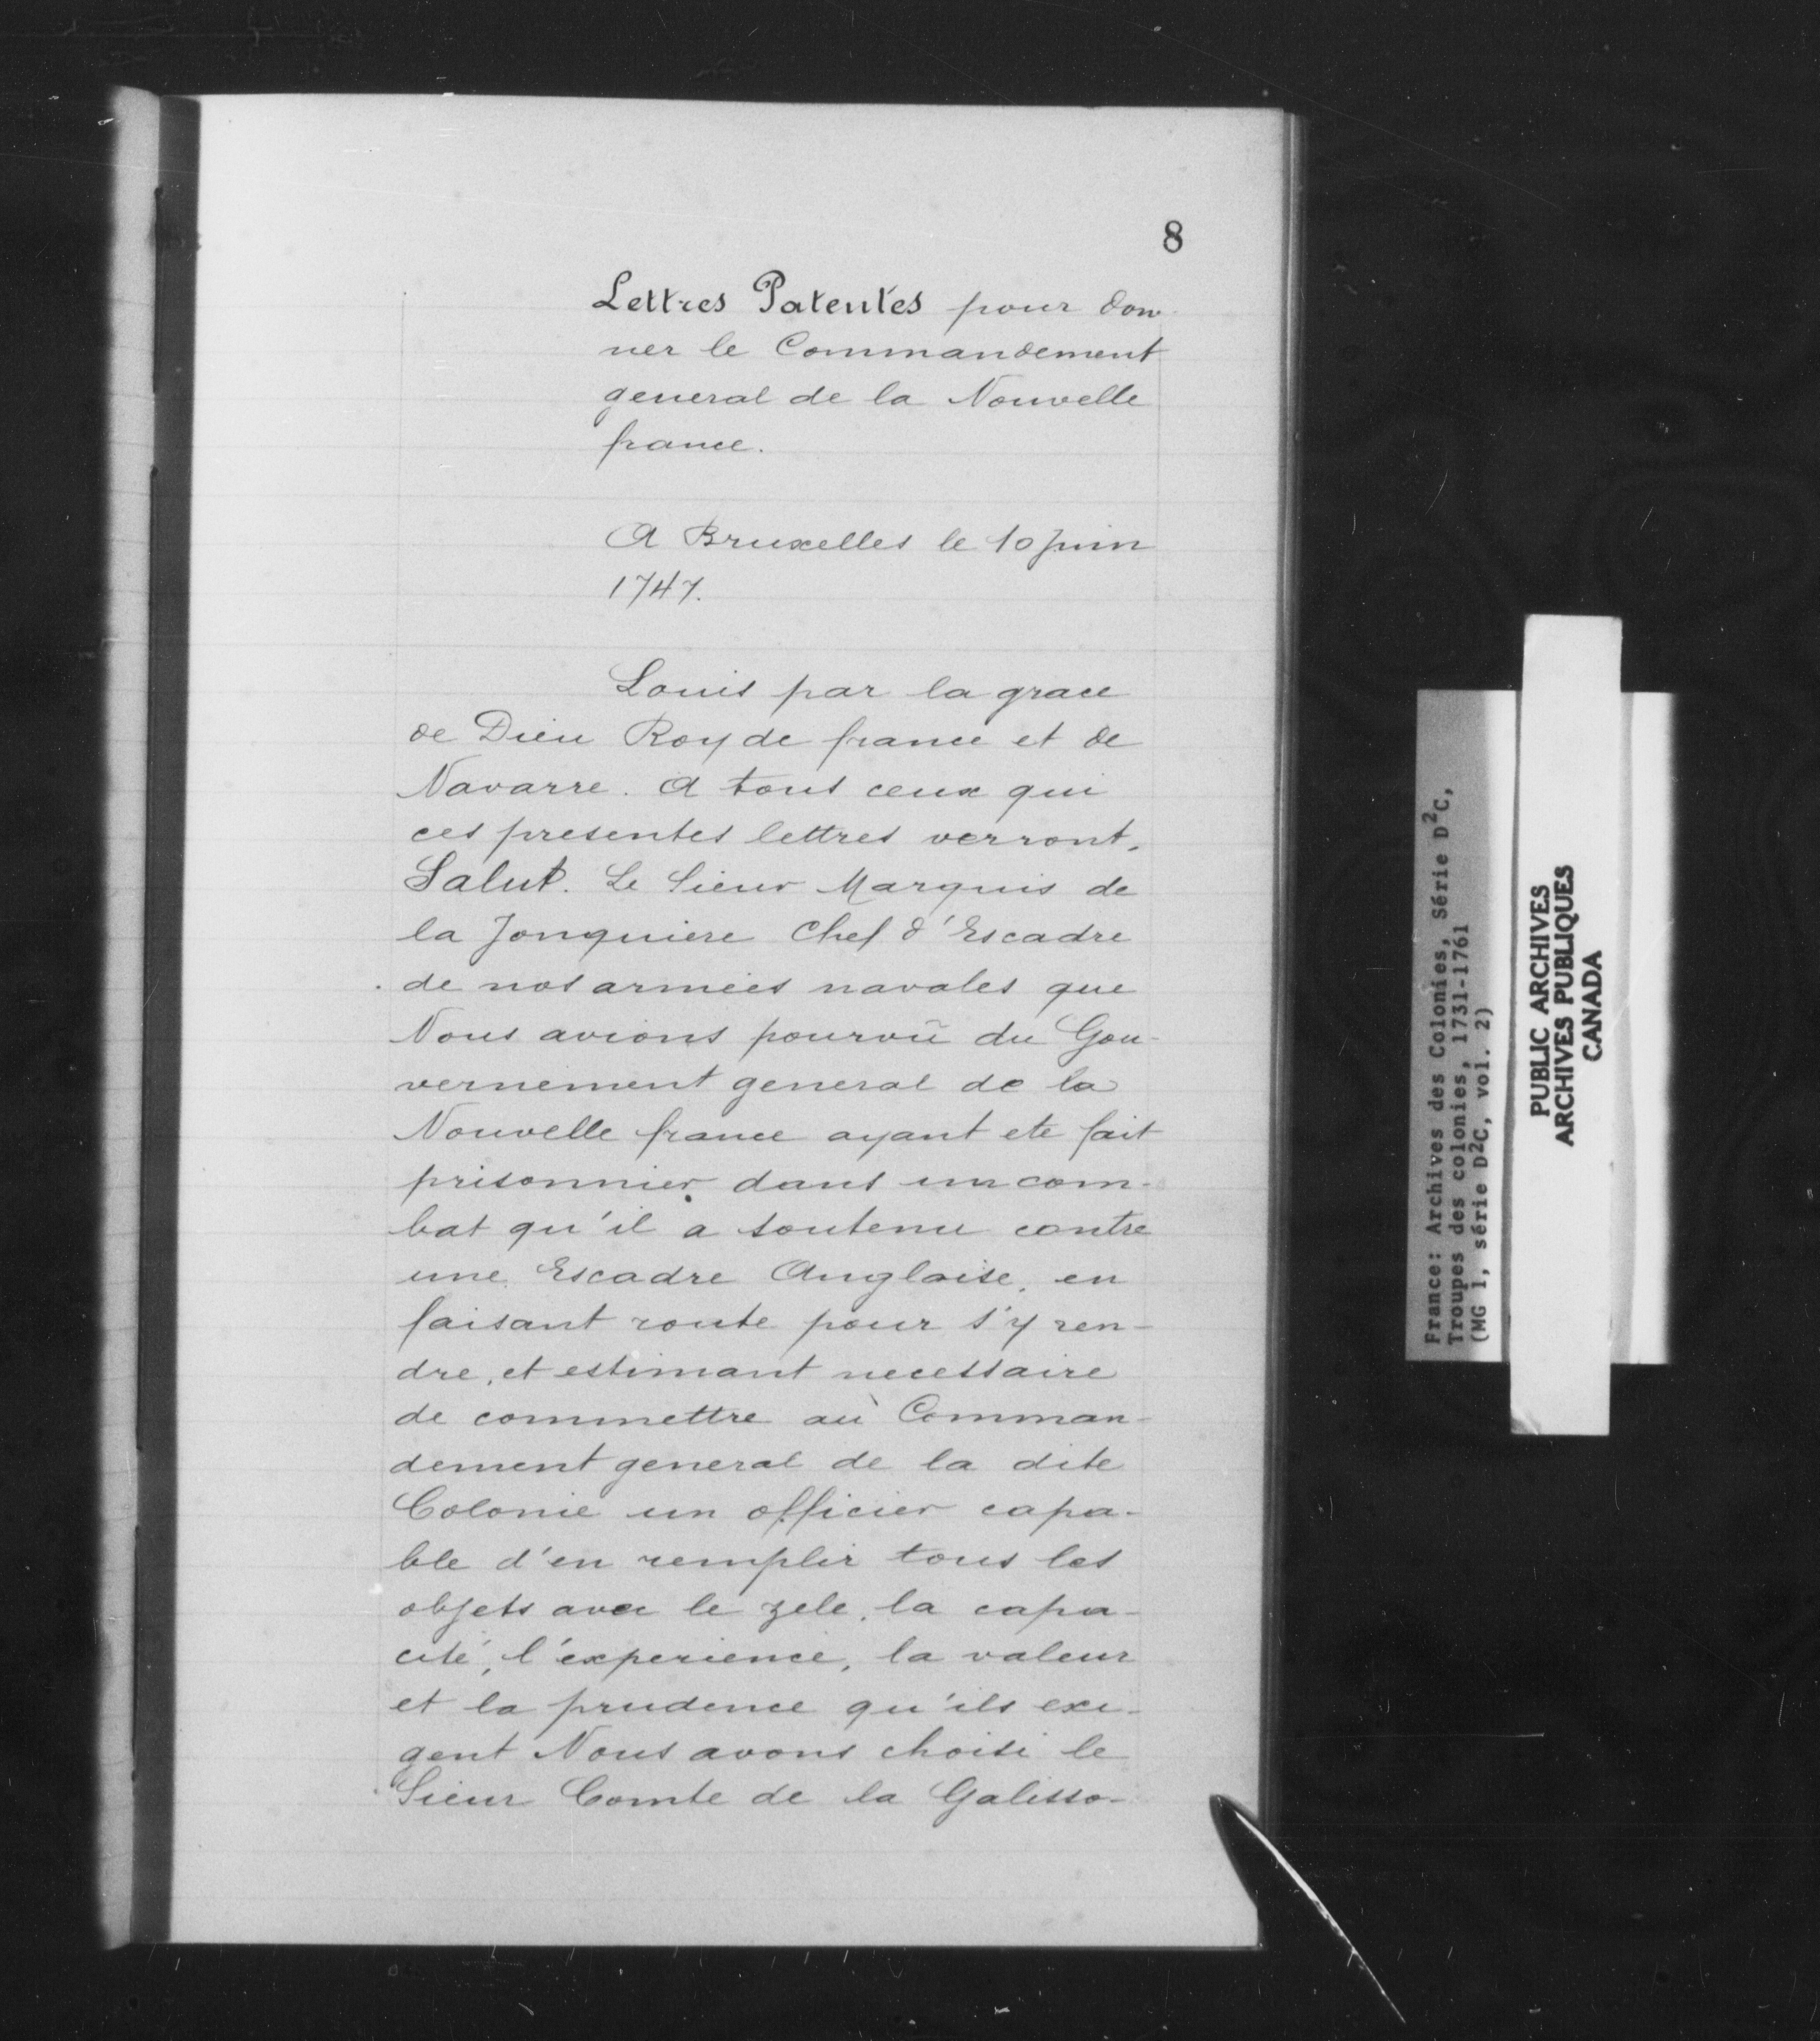 8
Lettres Patentes pour don-
ner le Commandement
general de la Nouvelle
france.
A Bruxelles le 10 Juin
1747.
Louis par la grace
de Dieu Roy de france et de
Navarre. A tous ceux qui
ces presentes lettres verront,
Salut. Le Sieur Marquis de
la Jonquiere Chef d'Escadre
de nos armées navales que
Nous avions pourvû du Gou-
vernement general de la
Nouvelle france ayant ete fait
prisonnier dans un com-
bat qu'il a soutenu contre
une Escadre Anglaise, en
faisant route pour s'y ren-
dre, et estimant necessaire
de commettre au Comman-
dement general de la dite
Colonie un officier capa-
ble d'en remplir tous les
objets avec le zele, la capa-
cité, l'experience, la valeur
et la prudence qu'ils exi-
gent Nous avons choisi le
Sieur Comte de la Galisso-
France: Archives des Colonies, Série D²C,
Troupes des colonies, 1731-1761
(MG 1, série D²C, vol. 2)
PUBLIC ARCHIVES
ARCHIVES PUBLIQUES
CANADA